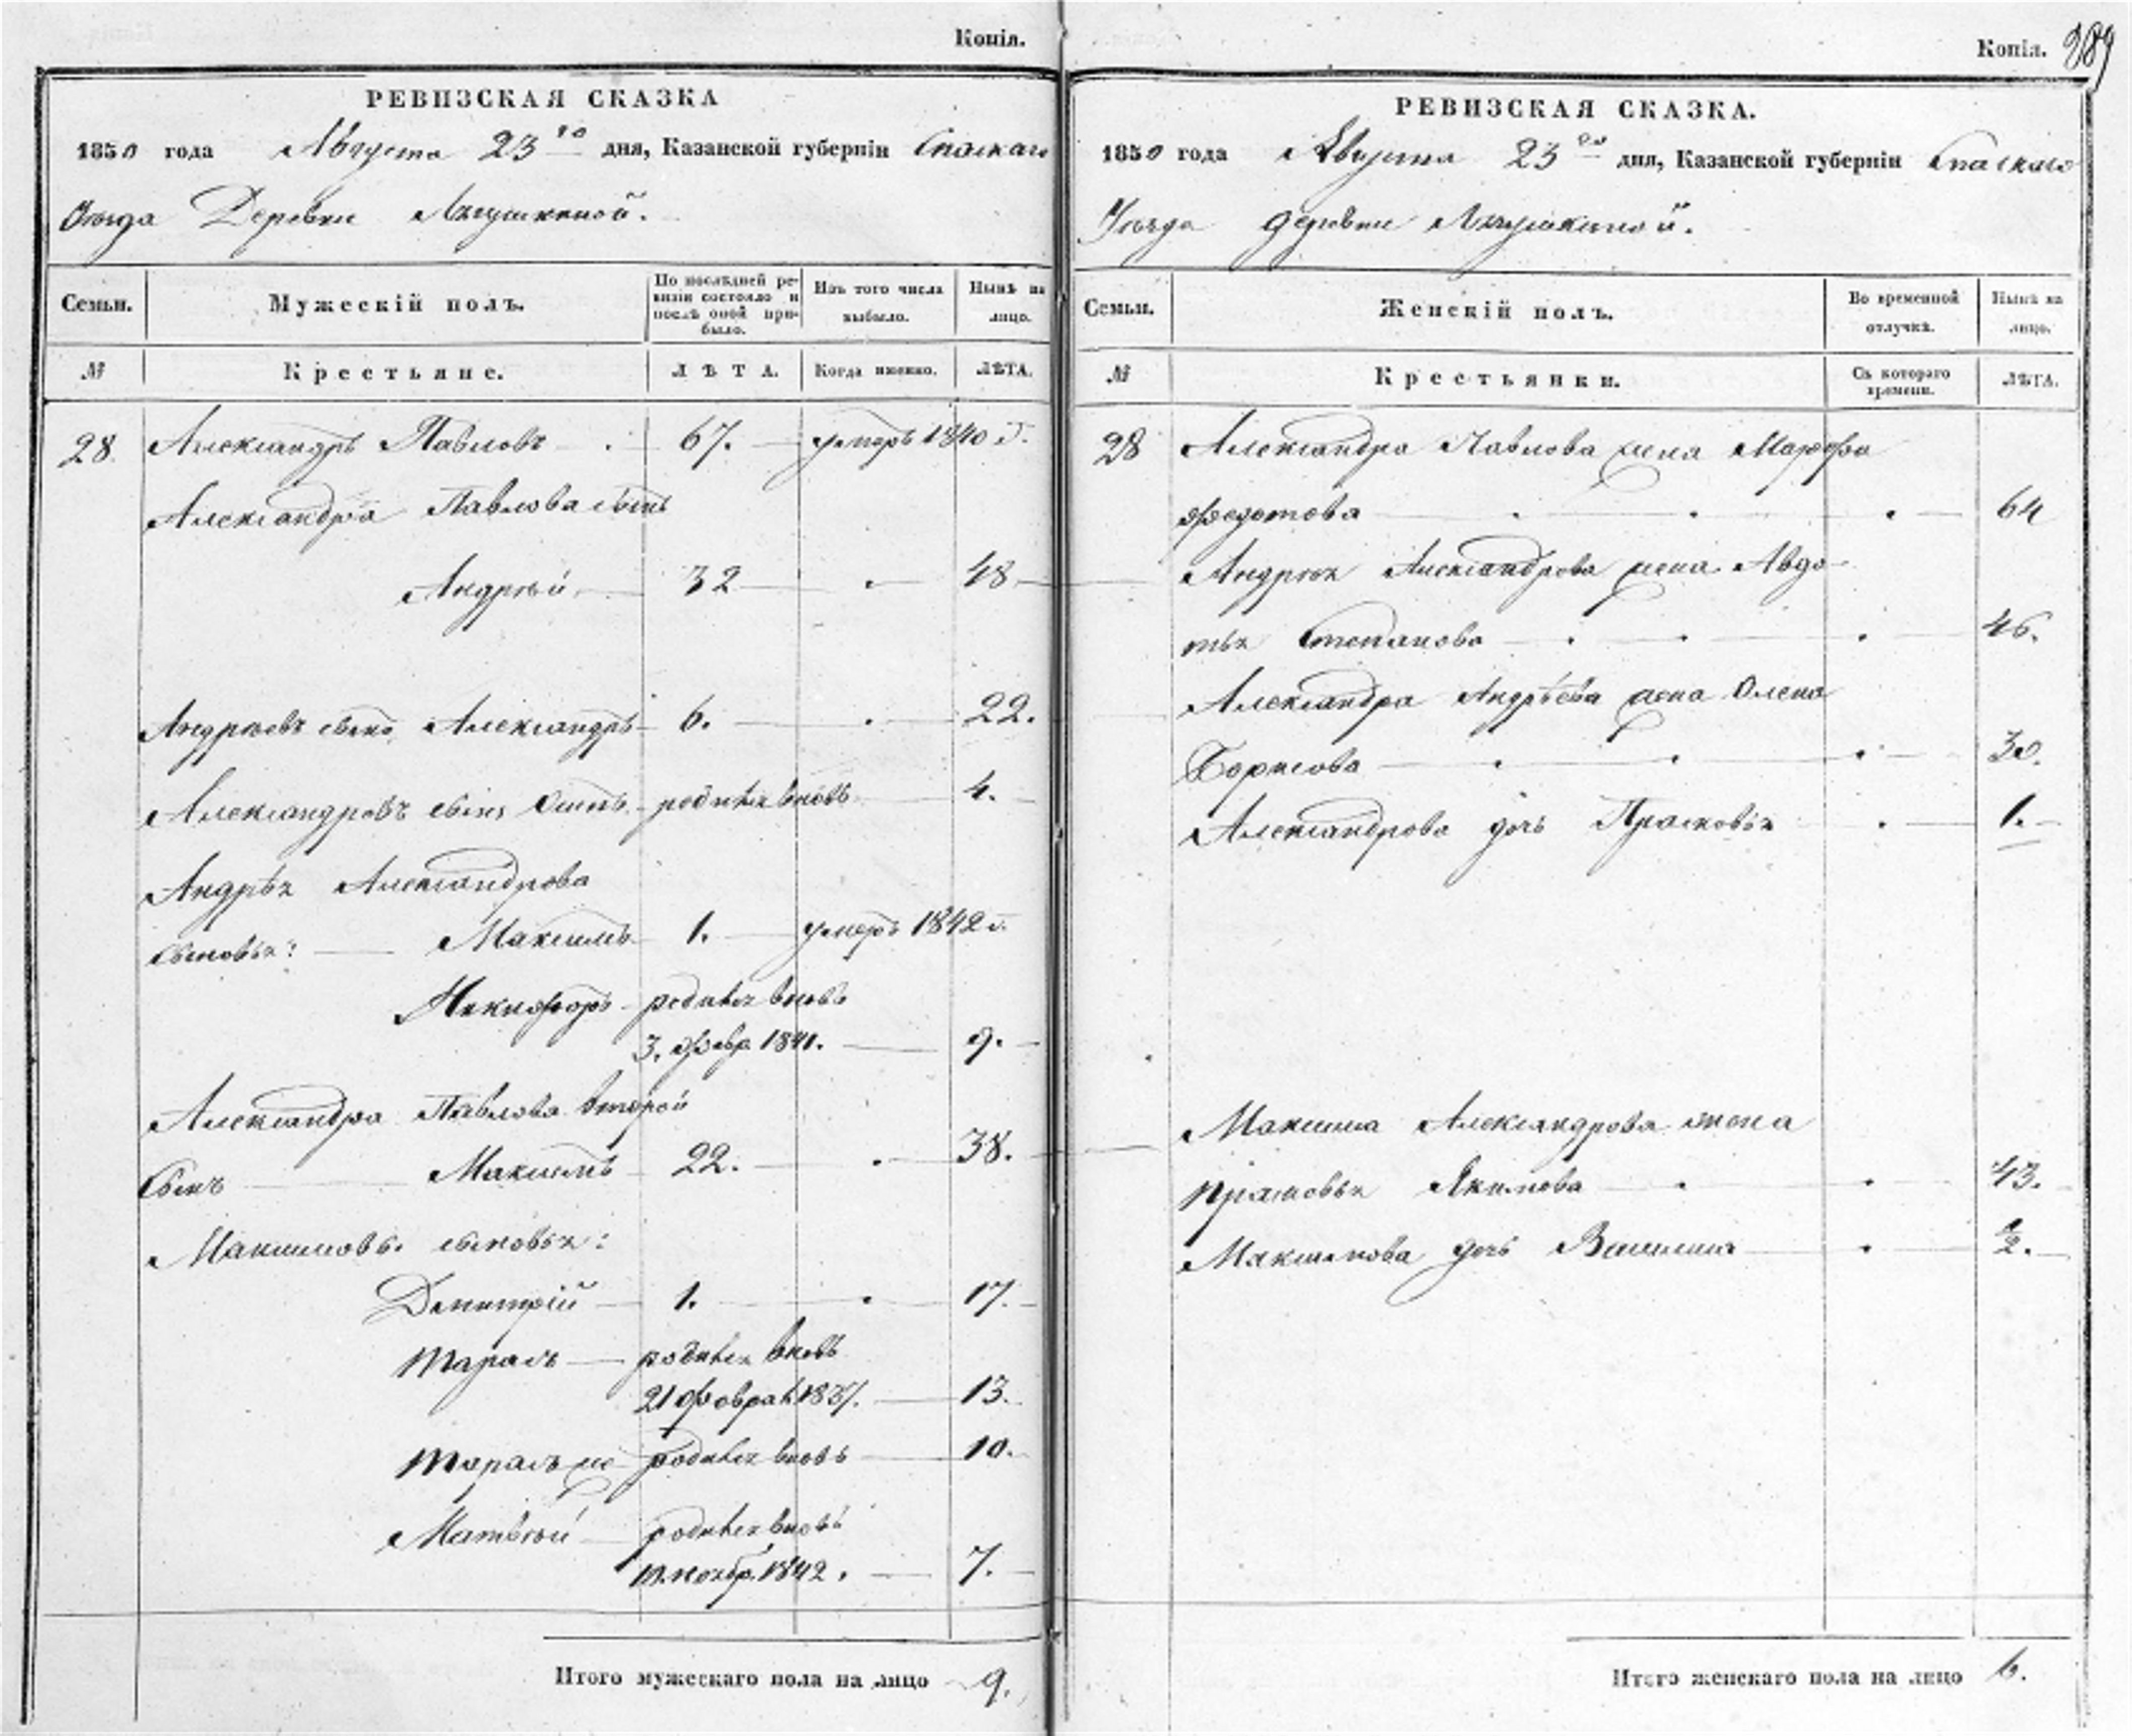 Копія.
РЕВИЗСКАЯ СКАЗКА
1850 года Августа 23го дня, Казанской губерніи Спаскаго
Уѣзда Деревни
Семьи. Мужескій полъ. По послѣдней ревизіи состояло и послѣ оной прибыло. Изъ того числа выбыло. Нынѣ на лицо.
№ Крестьяне. ЛѢТА. Когда именно. ЛѢТА.
28 Александръ Павловъ 67. умеръ 1840 г.
Александра Павлова сынъ
Андрѣй 32 48
Андрѣевъ сынъ Александръ 6. 22.
Александровъ сынъ Осипъ родился вновь 4.
Андрѣя Александрова
сыновья: Максимъ 1. умеръ 1842 г.
Никифоръ родился вновь
3. февр. 1841. 9.
Александра Павлова второй
сынъ Максимъ 22. 38.
Максимовы сыновья:
Димитрій 1. 17.
Тарасъ родился вновь
21 феврал. 1837. 13.
Тарасъ же родился вновь 10.
Матвѣй родился вновь
ноябр. 1842. 7.
Итого мужескаго пола на лицо 9.
Копія. 389
РЕВИЗСКАЯ СКАЗКА.
1850 года Августа 23го дня, Казанской губерніи Спаскаго
Уѣзда деревни
Семьи. Женскій полъ. Во временной отлучкѣ. Нынѣ на лицо.
№ Крестьянки. Съ котораго времени. ЛѢТА.
28 Александра Павлова жена Марфа
Федотова 64
Андрѣя Александрова жена Авдо-
тья Степанова 46.
Александра Андрѣева жена Олена
Борисова 30.
Александрова дочь Прасковья 1.
Максима Александрова жена
Прасковья Якимова 43.
Максимова дочь 2.
Итого женскаго пола на лицо 6.